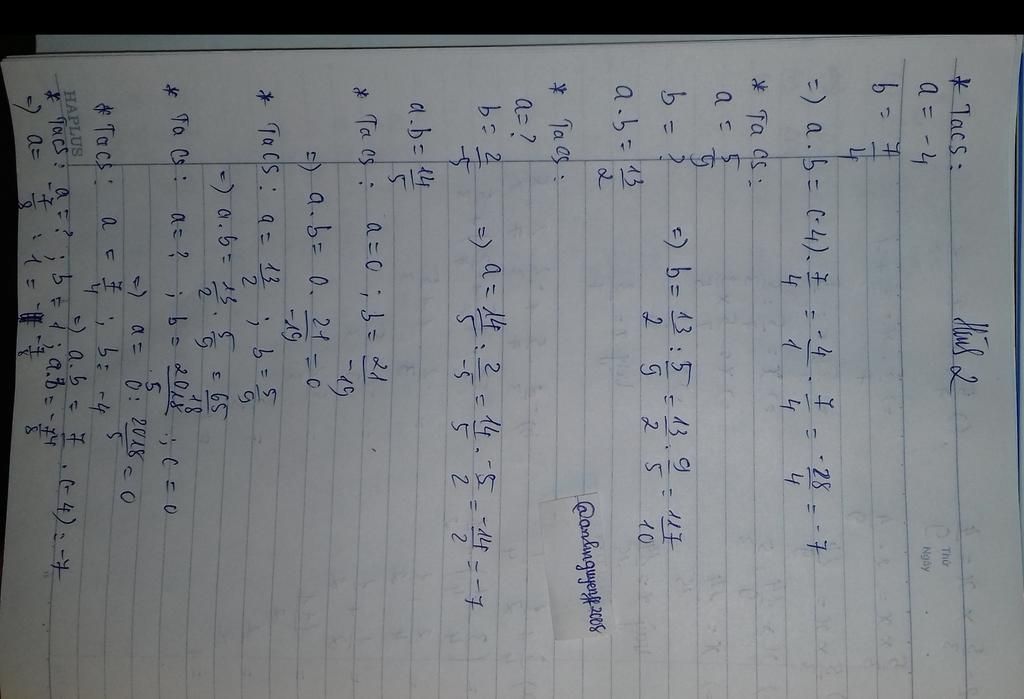 Hình 2
* Ta có:
a = -4
b = 7/4
=) a.b = (-4). 7/4 = -4/1 . 7/4 = -28/4 = -7
* Ta có:
a = 5/9
b = ?
=) b = 13/2 : 5/9 = 13/2 . 9/5 = 117/10
a.b = 13/2
* Ta có:
a = ?
b = 2/-5
=) a = 14/5 : 2/-5 = 14/5 . -5/2 = -14/2 = -7
a.b = 14/5
* Ta có: a = 0 ; b = 21/-19
=) a.b = 0. 21/-19 = 0
* Ta có: a = 13/2 ; b = 5/9
=) a.b = 13/2 . 5/9 = 65/18
* Ta có: a = ? ; b = 2018/5 ; c = 0
=) a = 0 : 2018/5 = 0
* Ta có: a = 7/4 ; b = -4
=) a.b = 7/4 . (-4) = -7
* Ta có: a = ? ; b = 1 ; a.b = -7/8
=) a = -7/8 : 1 = -7/8
HAPLUS
Thứ
Ngày